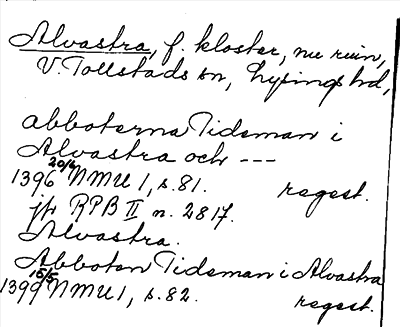 Alvastra, f. kloster, nu ruin,
V. Tollstads sn, Lysings hd,
abboterna Tidsman i
Alvastra och ---
1396 20/4 NMU 1, s. 81. regest.
jfr RPB II n. 2817.
Alvastra.
Abboten Tidsman i Alvastra
1399 15/5 NMU 1, s. 82. regest.